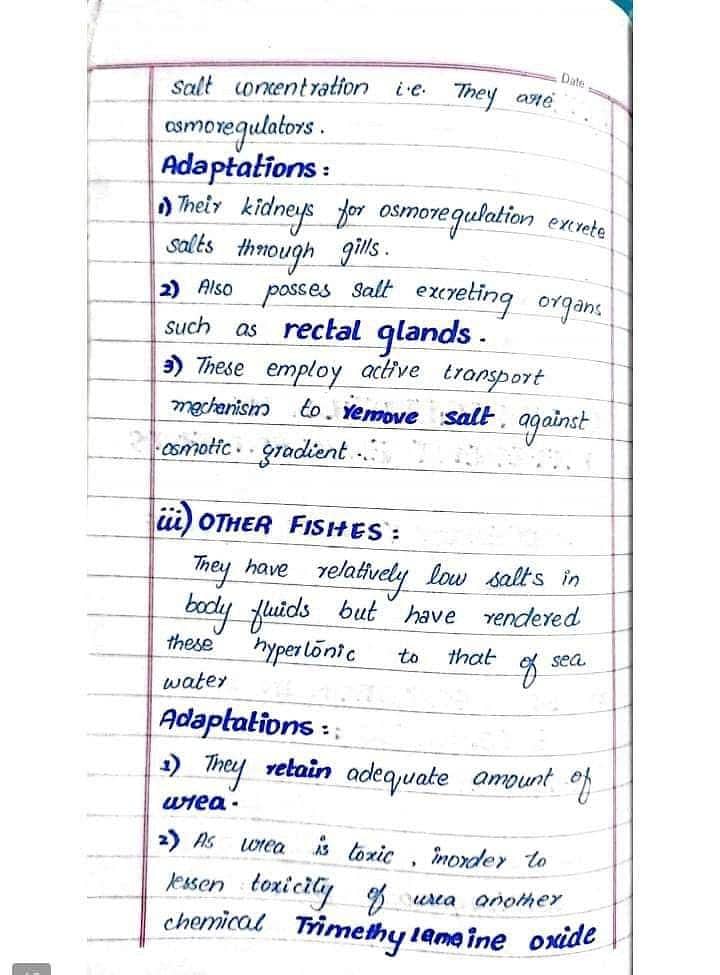 Date
salt concentration i.e. They are
osmoregulators.
Adaptations:
1) Their kidneys for osmoregulation excrete
salts through gills.
2) Also posses salt excreting organs
such as rectal glands.
3) These employ active transport
mechanism to remove salt against
osmotic gradient.
iii) OTHER FISHES:
They have relatively low salts in
body fluids but have rendered
these hypertonic to that of sea
water
Adaptations:
1) They retain adequate amount of
urea.
2) As urea is toxic, inorder to
lessen toxicity of urea another
chemical Trimethylamaine oxide